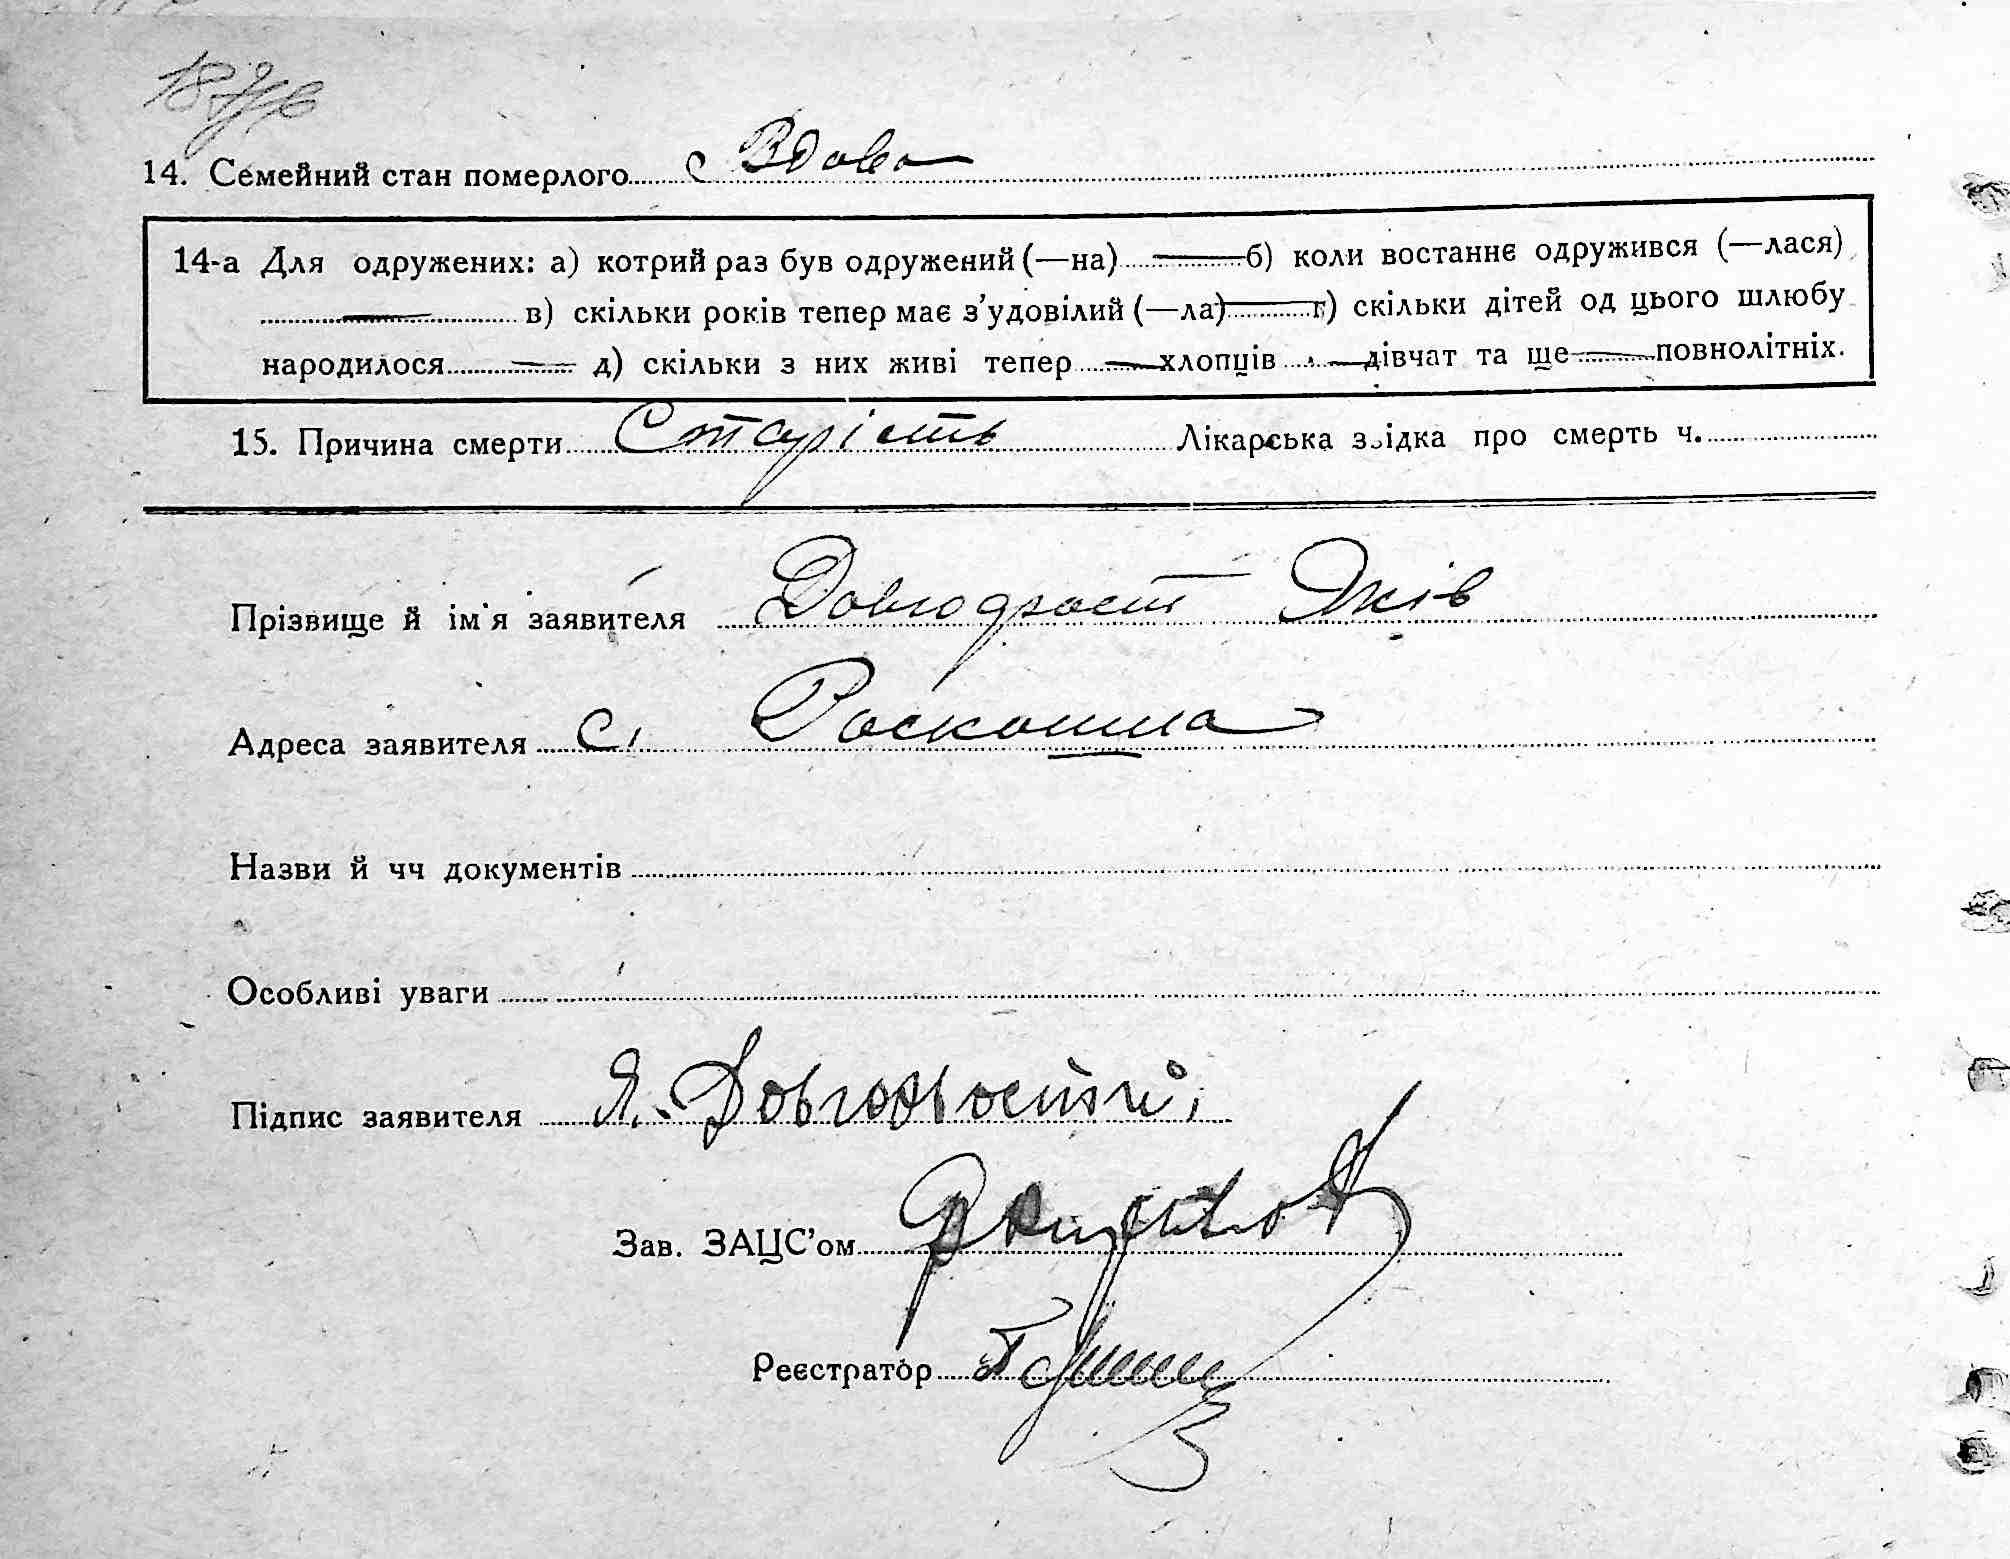 14. Семейний стан померлого Вдова
14-а Для одружених: а) котрий раз був одружений (—на) б) коли востаннє одружився (—лася)
в) скільки років тепер має з’удовілий (—ла) г) скільки дітей од цього шлюбу
народилося д) скільки з них живі тепер хлопців дівчат та ще повнолітніх.
15. Причина смерти Старість Лікарська звідка про смерть ч.
Прізвище й ім’я заявителя Довгодрост Яків
Адреса заявителя с. Роскошна
Назви й чч документів
Особливі уваги
Підпис заявителя Я.
Зав. ЗАЦС’ом
Реєстратор